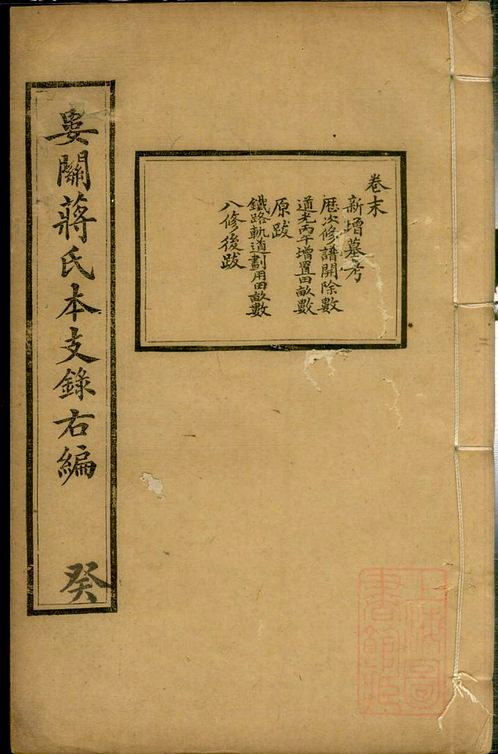 卷末
新增墓考
歷次修譜開除數
道光丙午增置田畝數
原跋
鐵路軌道劃用田畝數
八修後跋
婁關蔣氏本支錄右編
癸
上海圖書館藏